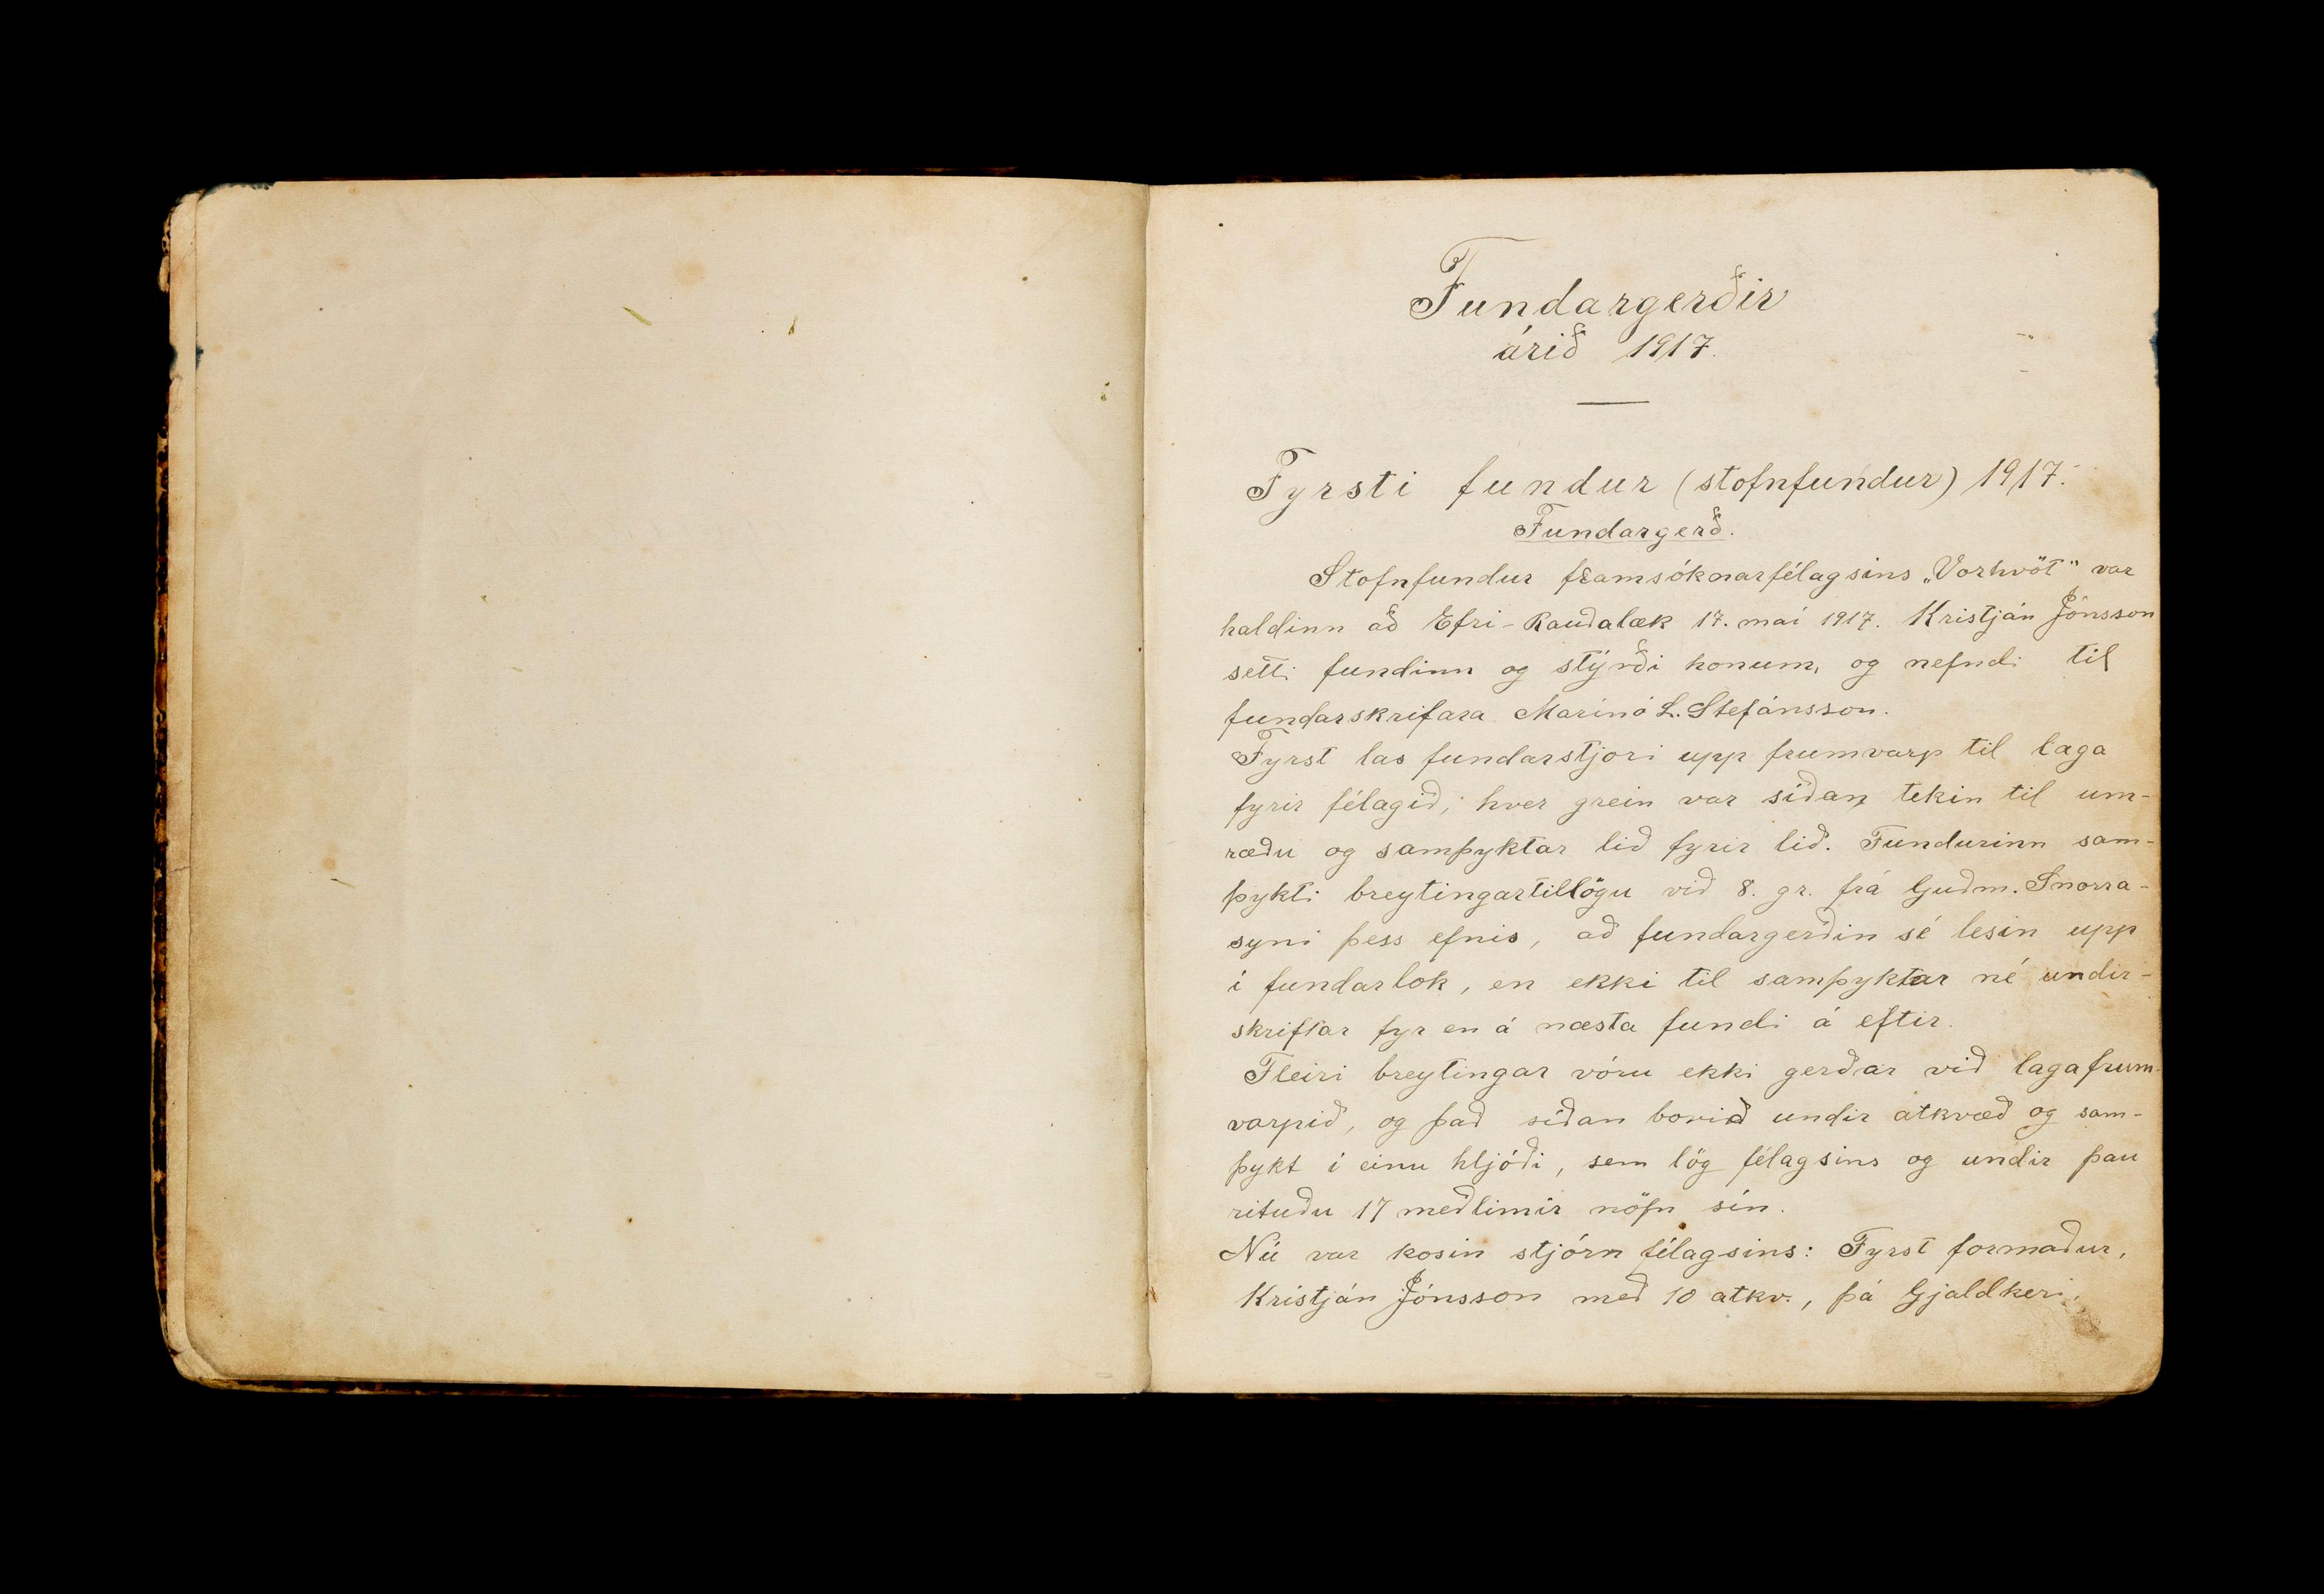 Fundargerðir
árið 1917.
Fyrsti fundur (stofnfundur) 1917.
Fundargerð.
Stofnfundur framsóknarfélagsins „Vorhvöt" var
haldinn að Efri-Rauðalæk 17. maí 1917. Kristján Jónsson
setti fundinn og stýrði honum, og nefndi til
fundarskrifara Marínó L. Stefánsson.
Fyrst las fundarstjori upp frumvarp til laga
fyrir félagið; hver grein var síðan tekin til um-
ræðu og samþyktar lið fyrir lið. Fundurinn sam-
þykti breytingartillögu við 8. gr. frá Guðm. Snorra-
syni þess efnis, að fundargerðin sé lesin upp
í fundarlok, en ekki til samþyktar né undir-
skriftar fyr en á næsta fundi á eftir.
Fleiri breytingar vóru ekki gerðar við lagafrum-
varpið, og það síðan borið undir atkvæð og sam-
þykt í einu hljóði, sem lög félagsins og undir þau
rituðu 17 meðlimir nöfn sín.
Nú var kosin stjórn félagsins: Fyrst formaður,
Kristján Jónsson með 10 atkv., þá Gjaldkeri,